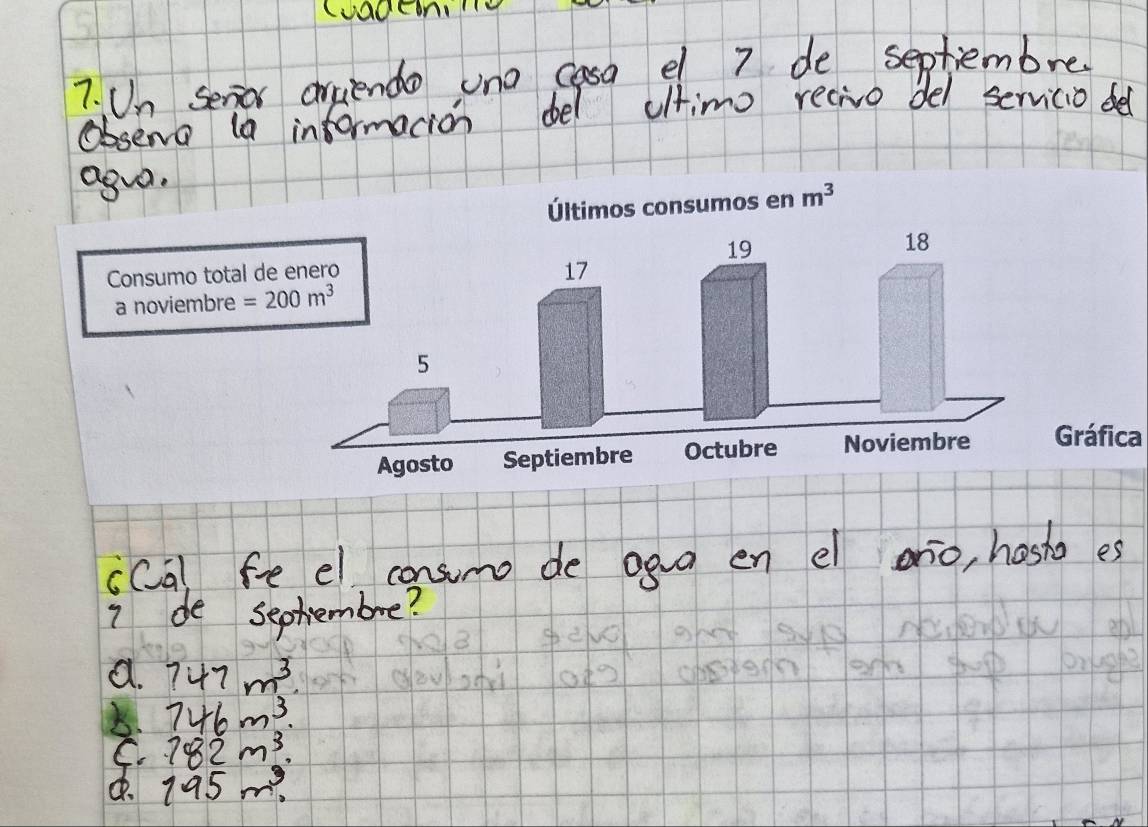 Cuadernillo
7. Un señor arriendo una casa el 7 de septiembre.
Observa la información del ultimo recivo del servicio del
agua.
Últimos consumos en m³
Consumo total de enero
a noviembre = 200 m³
5
17
19
18
Agosto
Septiembre
Octubre
Noviembre
Gráfica
¿Cál fue el consumo de agua en el año, hasta es
7 de septiembre?
a. 747 m³.
b. 746 m³.
c. 782 m³.
d. 795 m³.